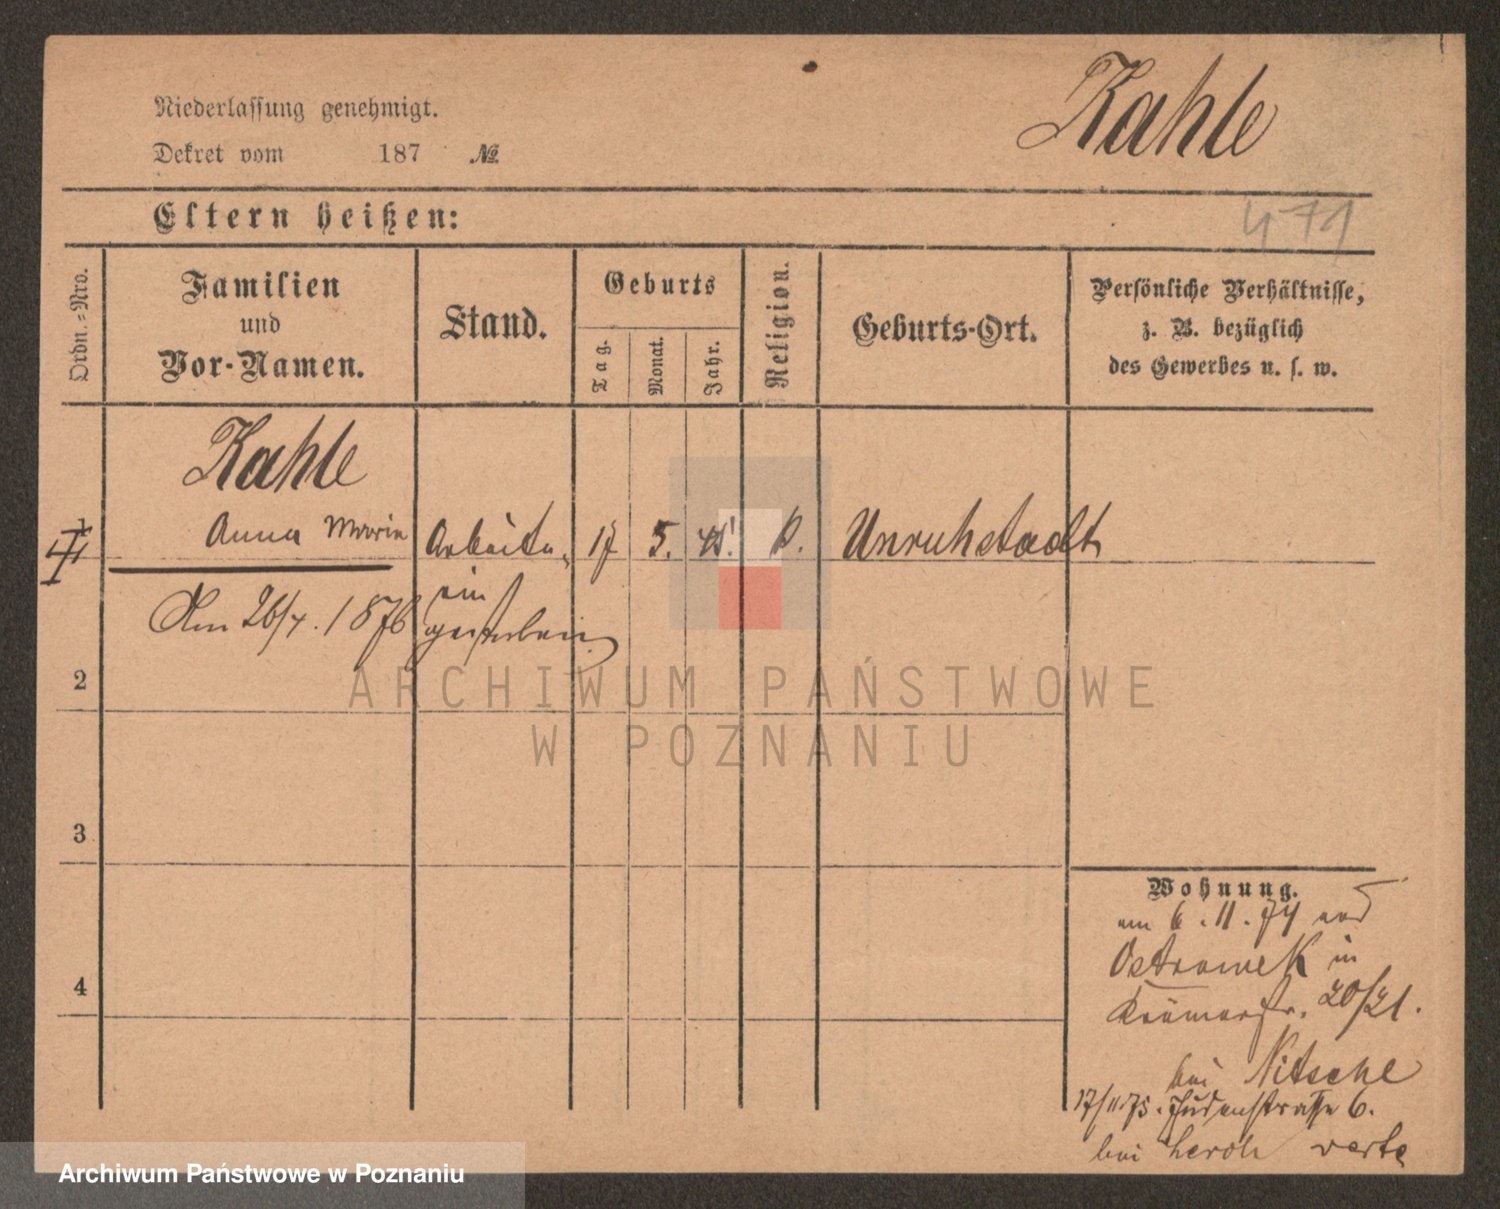 Kahle
Niederlassung genehmigt.
Dekret vom 187 №
Eltern heißen:
471
Ordn.-Nro.
Familien
und
Vor-Namen.
Stand.
Geburts
Tag.
Monat.
Jahr.
Religion.
Geburts-Ort.
Persönliche Verhältnisse,
z. B. bezüglich
des Gewerbes u. s. w.
Kahle
Anna Maria Arbeite- 17 5. Unruhstadt
rin
Am 26/4. 1876 gestorben.
2
3
4
Wohnung.
am 6. 11. 74
Ostrowek in
Krämerstr. 20/21.
bei Nitsche
17/11.75. Judenstrasse 6.
bei verte
ARCHIWUM PAŃSTWOWE
W POZNANIU
Archiwum Państwowe w Poznaniu